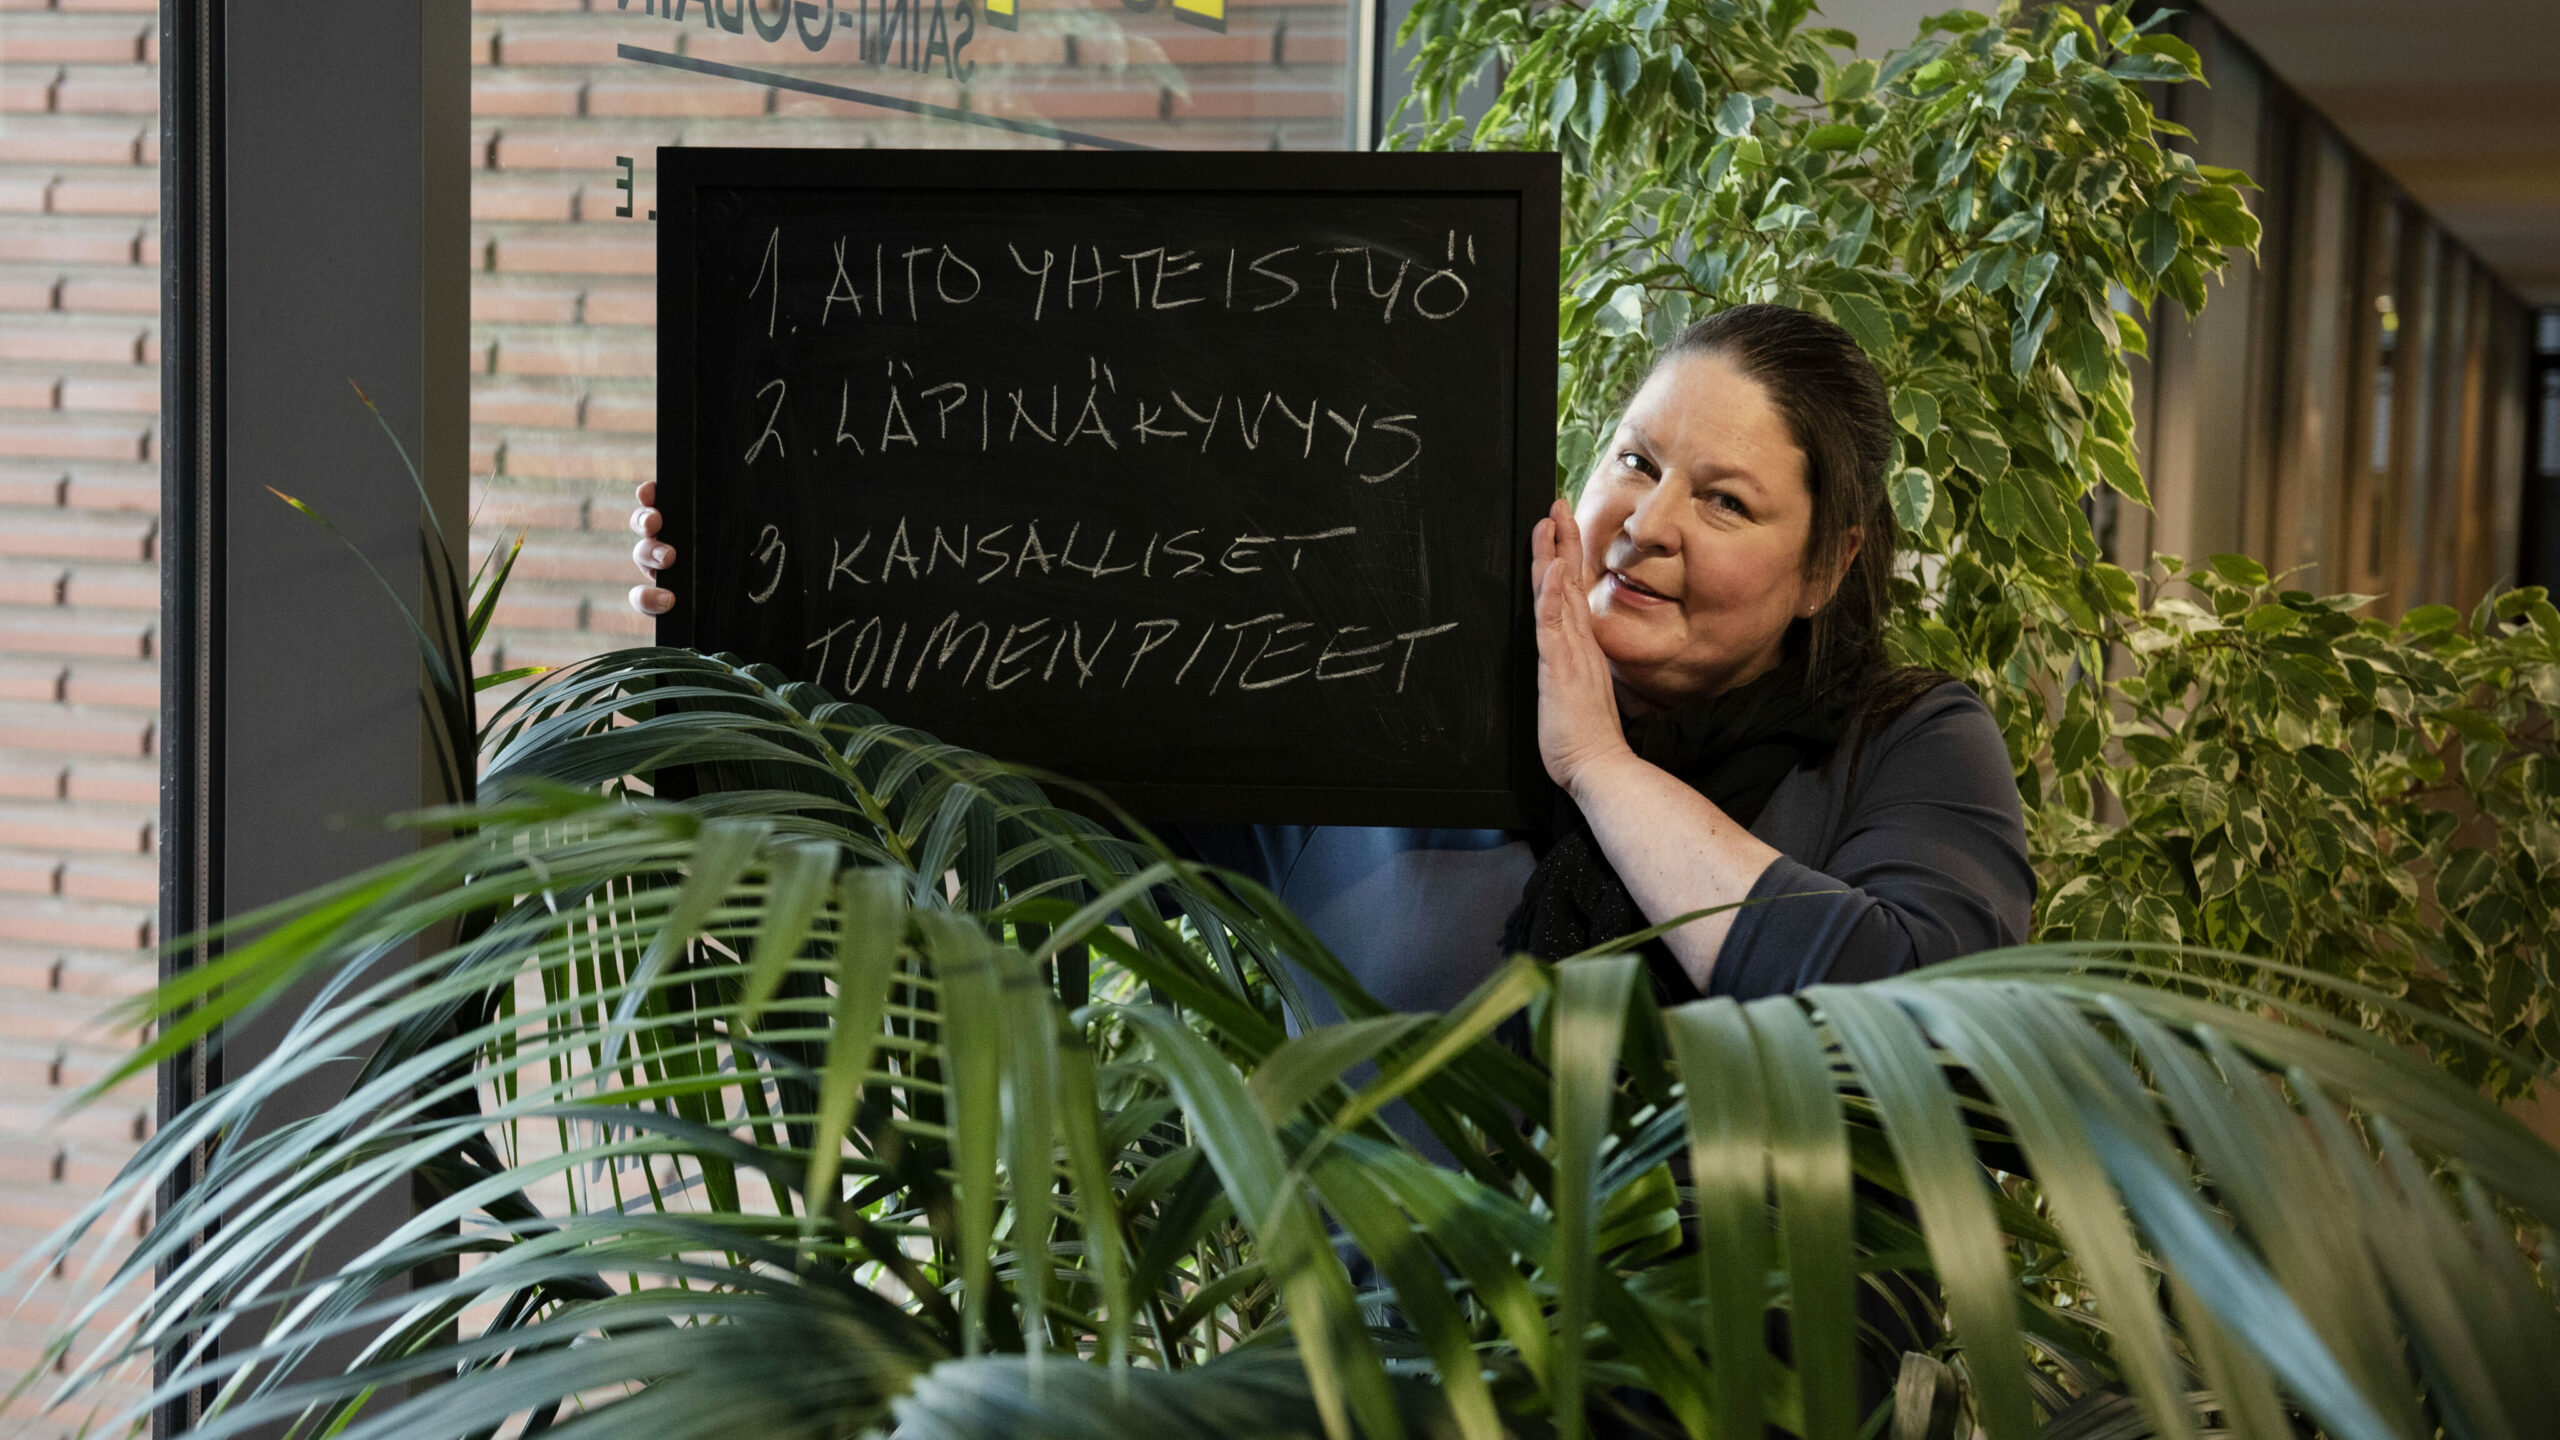 SAINT-GOBAIN
1. AITO YHTEISTYÖ
2. LÄPINÄKYVYYS
3 KANSALLISET
TOIMENPITEET